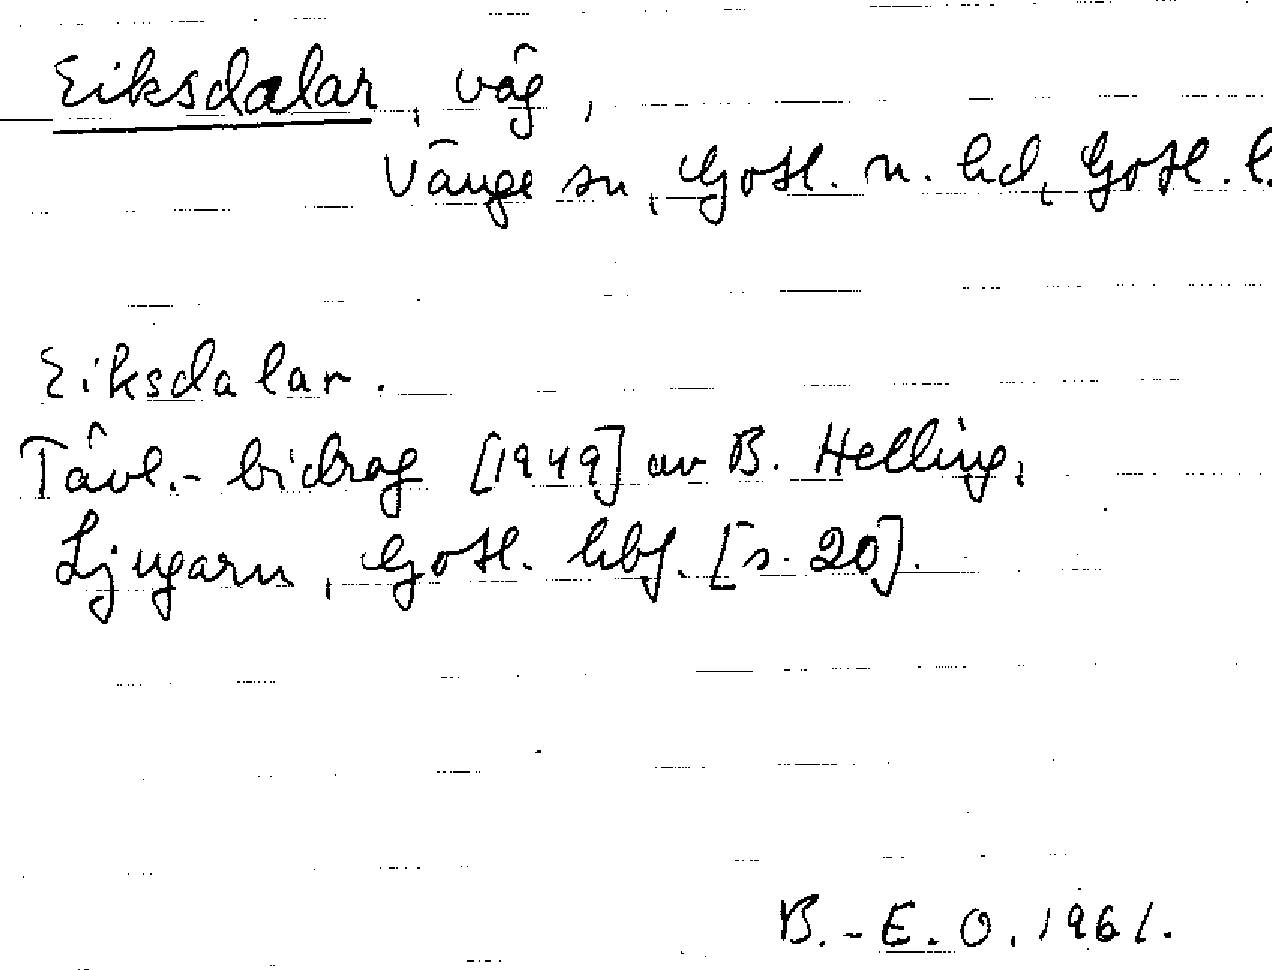 Eiksdalar, väg,
Vänge sn, Gotl. n. hd, Gotl. l.
Eiksdalar.
Tävl.-bidrag [1949] av B. Helling,
Ljugarn, Gotl. hbf. [s. 20].
B.-E. O. 1961.